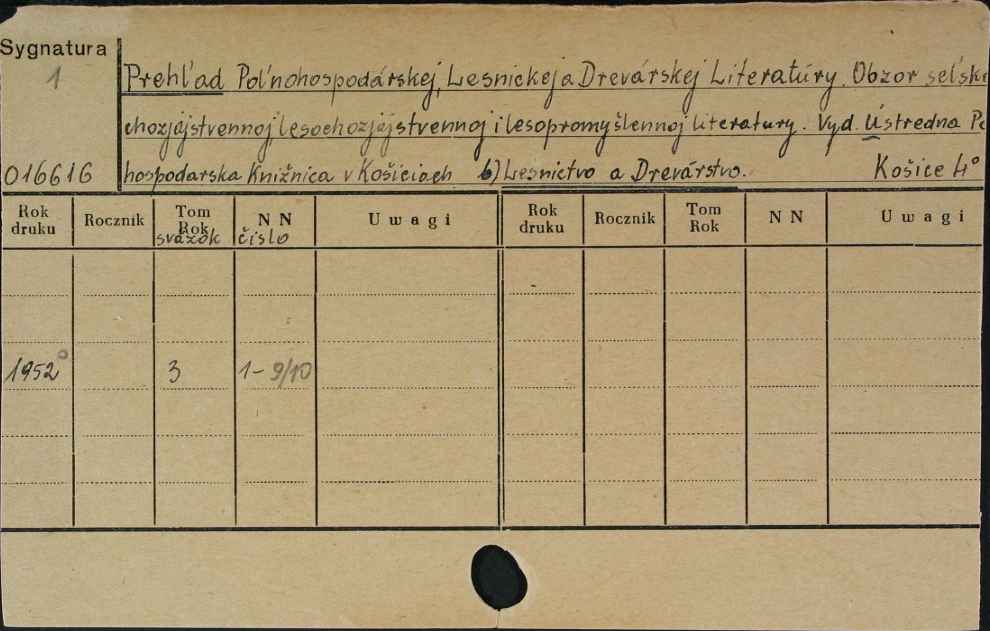 Sygnatura
1
Prehľad Poľnohospodárskej, Lesnickej a Drevárskej Literatúry. Obzor seľsko
chozjajstvennoj, lesochozjajstvennoj i lesopromyšlennoj literatury. Vyd. Ústredna Po
016616 hospodarska Knižnica v Košiciach b) Lesníctvo a Drevárstvo. Košice 4°
Rok druku Rocznik Tom Rok svázok N N čislo Uwagi Rok druku Rocznik Tom Rok N N Uwagi
1952° 3 1-9/10